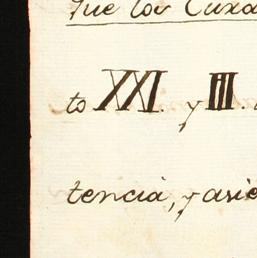 Que los Cura
to XXI. y III.
tencia, y asie